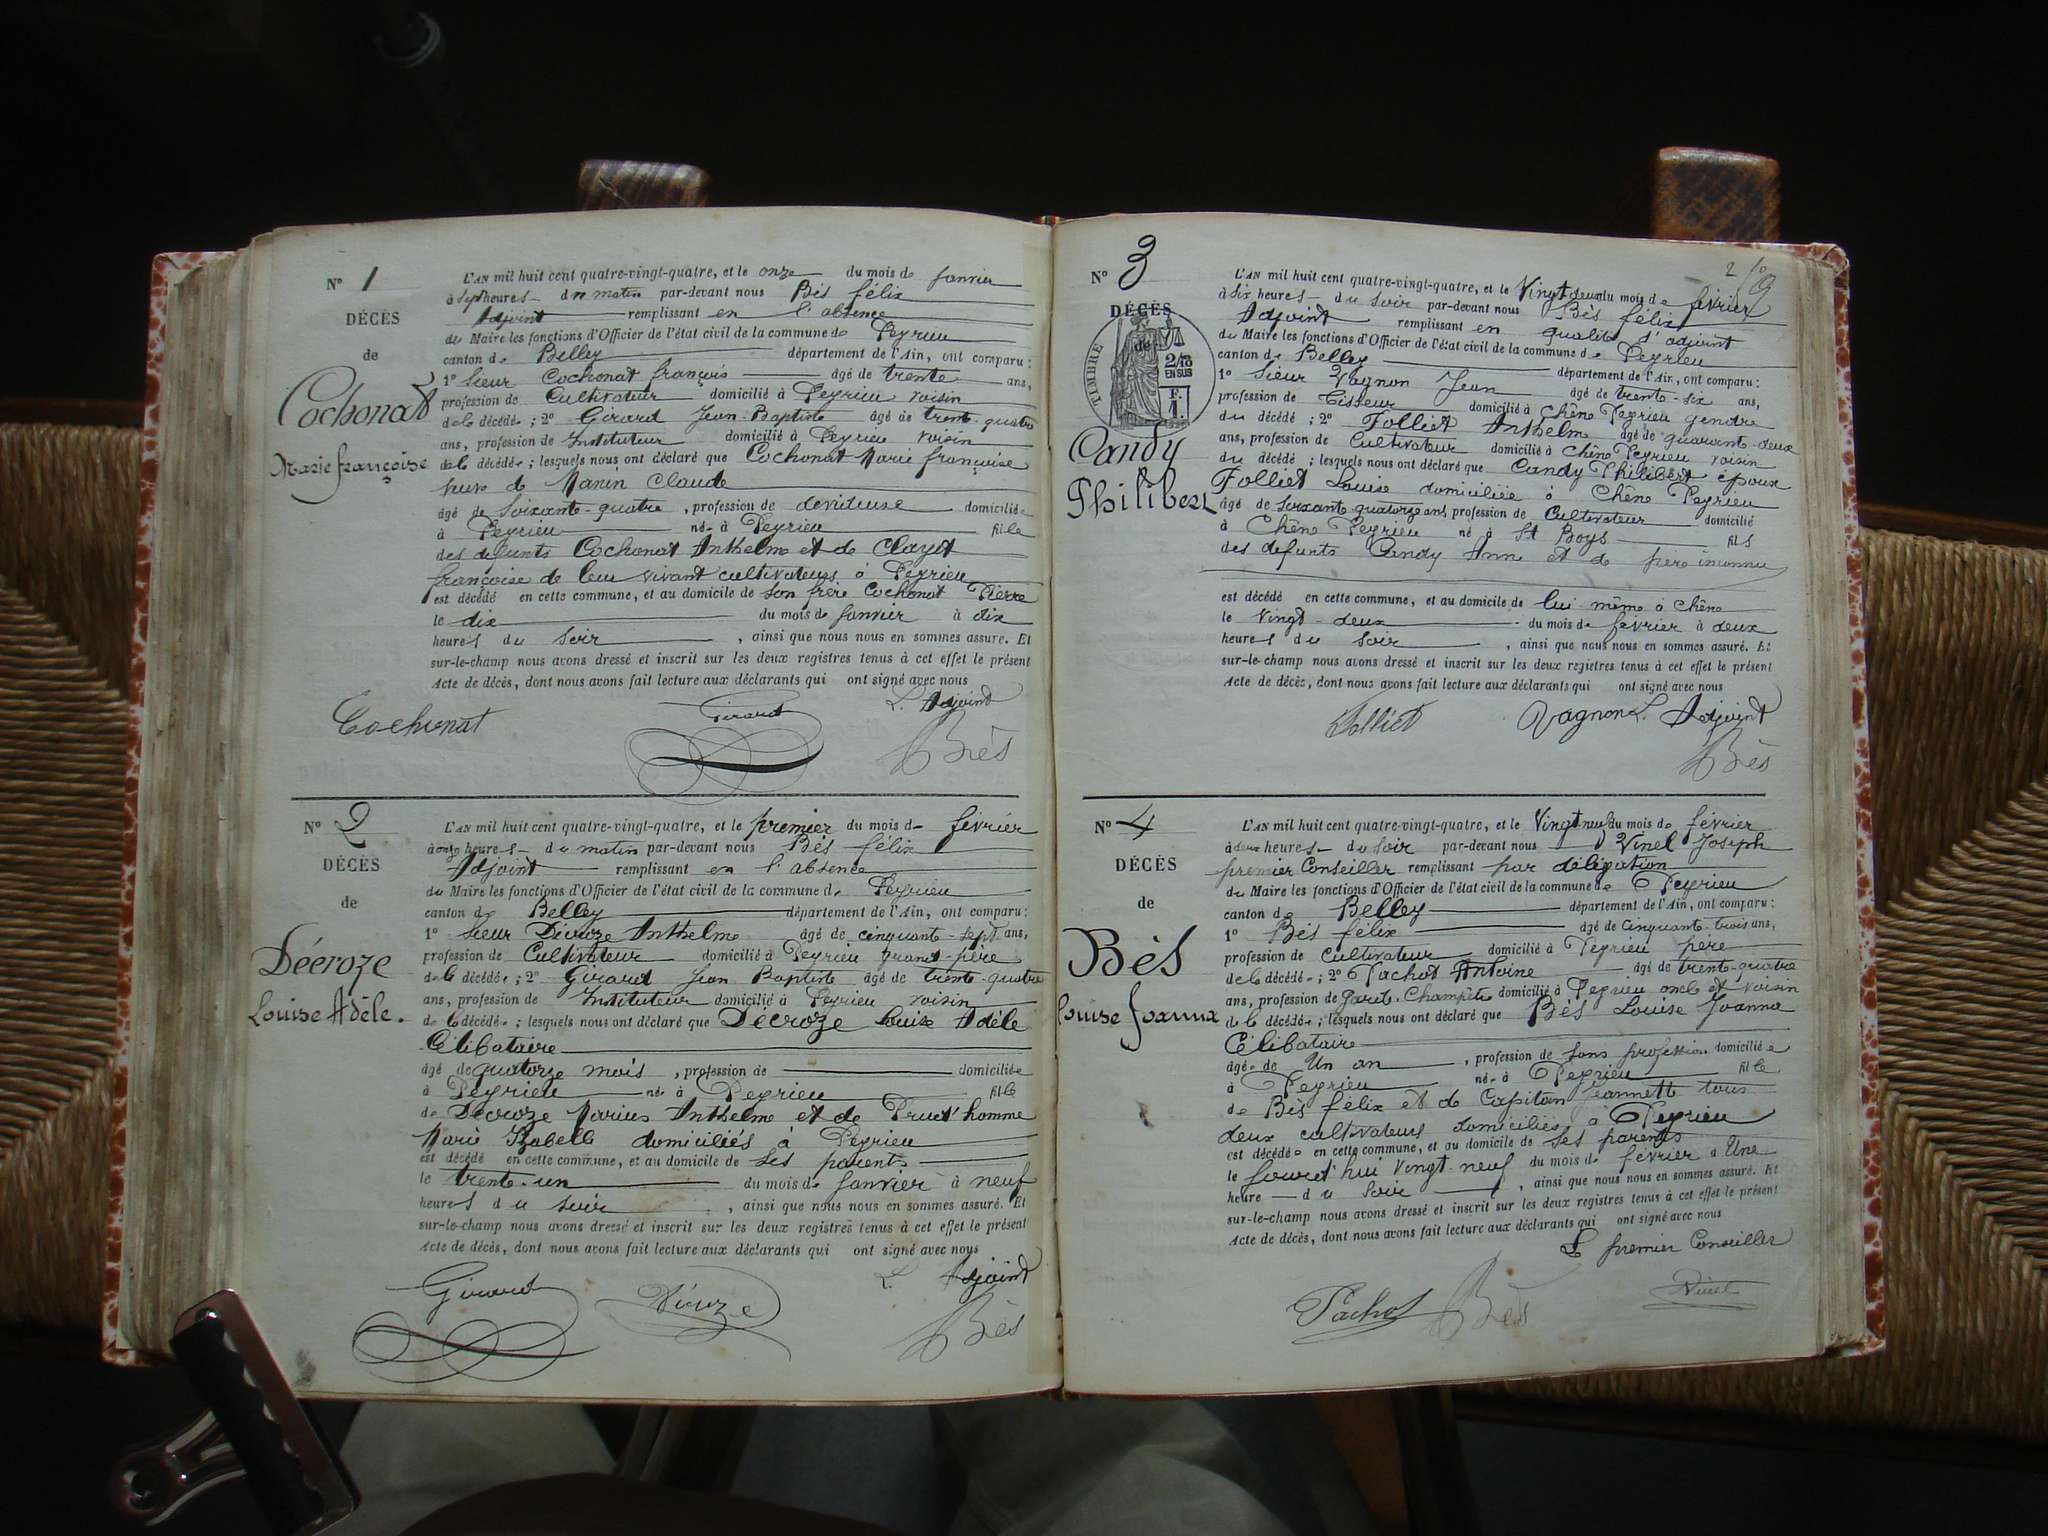 N° 1
DÉCÈS
de
Cochonat
Marie françoise
L'AN mil huit cent quatre-vingt-quatre, et le onze du mois de Janvier
à sept heures du matin par-devant nous Bès félix
Adjoint remplissant en l'absence
du Maire les fonctions d'Officier de l'état civil de la commune de Peyrieu
canton de Belley département de l'Ain, ont comparu :
1° Sieur Cochonat françois âgé de trente ans,
profession de Cultivateur domicilié à Peyrieu voisin
de la décédée ; 2° Girard Jean-Baptiste âgé de trente-quatre
ans, profession de Instituteur domicilié à Peyrieu voisin
de la décédée ; lesquels nous ont déclaré que Cochonat Marie françoise
veuve de Manin Claude
âgé de soixante-quatre, profession de devideuse domiciliée
à Peyrieu née à Peyrieu fille
des defunts Cochonat Anthelme et de Clayet
françoise de leur vivant cultivateurs à Peyrieu
est décédé en cette commune, et au domicile de son frère Cochonat Pierre
le dix du mois de Janvier à dix
heures du soir, ainsi que nous nous en sommes assuré. Et
sur-le-champ nous avons dressé et inscrit sur les deux registres tenus à cet effet le présent
Acte de décès, dont nous avons fait lecture aux déclarants qui ont signé avec nous
L. Adjoint
Cochonat Girard Bès
N° 2
DÉCÈS
de
Décroze
Louise Adèle.
L'AN mil huit cent quatre-vingt-quatre, et le premier du mois de février
à onze heures du matin par-devant nous Bès félix
Adjoint remplissant en l'absence
du Maire les fonctions d'Officier de l'état civil de la commune de Peyrieu
canton de Belley département de l'Ain, ont comparu :
1° Sieur Décroze Anthelme âgé de cinquante-sept ans,
profession de Cultivateur domicilié à Peyrieu grand-père
de la décédée ; 2° Girard Jean Baptiste âgé de trente-quatre
ans, profession de Instituteur domicilié à Peyrieu voisin
de la décédée ; lesquels nous ont déclaré que Décroze Louise Adèle
Célibataire
âgé de quatorze mois, profession de domiciliée
à Peyrieu née à Peyrieu fille
de Décroze Marius Anthelme et de Prud'homme
Marie Izabelle domiciliés à Peyrieu
est décédé en cette commune, et au domicile de ses parents
le trente-un du mois de Janvier à neuf
heures du soir, ainsi que nous nous en sommes assuré. Et
sur-le-champ nous avons dressé et inscrit sur les deux registres tenus à cet effet le présent
Acte de décès, dont nous avons fait lecture aux déclarants qui ont signé avec nous
L. Adjoint
Girard Décroze Bès
2
N° 3
DÉCÈS
de
TIMBRE
2/10
EN SUS
F.
1.
Candy
Philibert
L'AN mil huit cent quatre-vingt-quatre, et le Vingt-deux du mois de février
à six heures du soir par-devant nous Bès félix
Adjoint remplissant en qualité d'adjoint
du Maire les fonctions d'Officier de l'état civil de la commune de Peyrieu
canton de Belley département de l'Ain, ont comparu :
1° Sieur Vagnon Jean âgé de trente-six ans,
profession de Tisseur domicilié à Chêne Peyrieu gendre
du décédé ; 2° Folliet Anthelme âgé de quarante-deux
ans, profession de Cultivateur domicilié à Chêne Peyrieu voisin
du décédé ; lesquels nous ont déclaré que Candy Philibert époux
Folliet Louise domiciliée à Chêne Peyrieu
âgé de soixante quatorze ans profession de Cultivateur domicilié
à Chêne Peyrieu né à St Boys fils
des defunts Candy Anne et de père inconnu
est décédé en cette commune, et au domicile de lui même à Chêne
le Vingt-deux du mois de février à deux
heures du soir, ainsi que nous nous en sommes assuré. Et
sur-le-champ nous avons dressé et inscrit sur les deux registres tenus à cet effet le présent
Acte de décès, dont nous avons fait lecture aux déclarants qui ont signé avec nous
Folliet Vagnon L. Adjoint
Bès
N° 4
DÉCÈS
de
Bès
Louise Joanna
L'AN mil huit cent quatre-vingt-quatre, et le Vingt-neuf du mois de février
à deux heures du soir par-devant nous Vinel Joseph
premier Conseiller remplissant par délégation
du Maire les fonctions d'Officier de l'état civil de la commune de Peyrieu
canton de Belley département de l'Ain, ont comparu :
1° Bès félix âgé de cinquante-trois ans,
profession de cultivateur domicilié à Peyrieu père
de la décédée ; 2° Pachot Antoine âgé de trente-quatre
ans, profession de Garde-Champêtre domicilié à Peyrieu oncle et voisin
de la décédée ; lesquels nous ont déclaré que Bès Louise Joanna
Célibataire
âgée de Un an, profession de sans profession domiciliée
à Peyrieu née à Peyrieu fille
de Bès félix et de Capitan Jeannette tous
deux cultivateurs domiciliés à Peyrieu
est décédée en cette commune, et au domicile de ses parents
le Jourd'hui vingt-neuf du mois de février à Une
heure du soir, ainsi que nous nous en sommes assuré. Et
sur-le-champ nous avons dressé et inscrit sur les deux registres tenus à cet effet le présent
Acte de décès, dont nous avons fait lecture aux déclarants qui ont signé avec nous
Le premier Conseiller
Pachot Bès Vinel